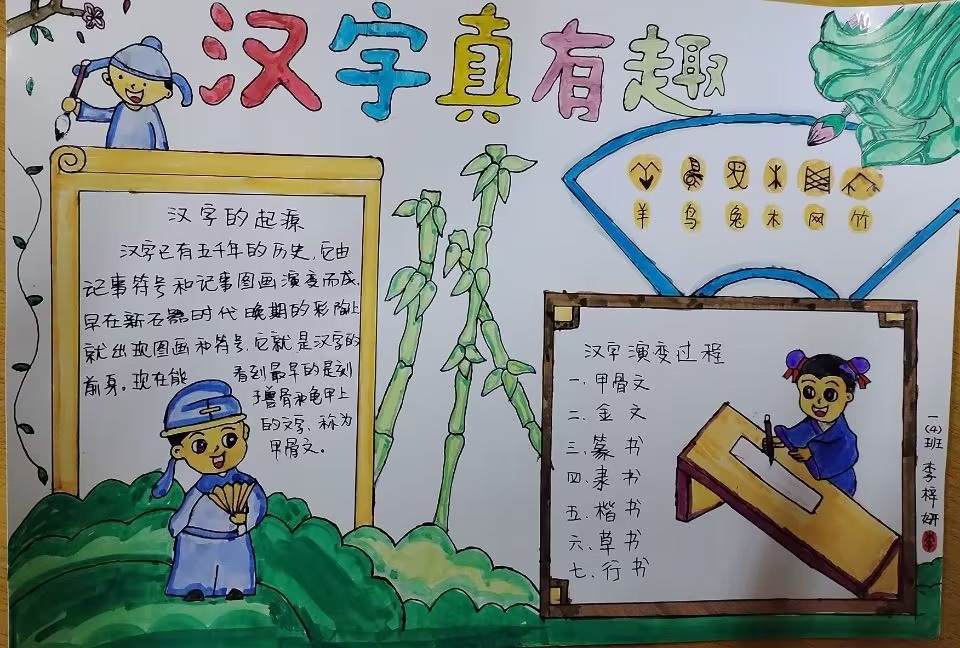 汉字真有趣
汉字的起源
汉字已有五千年的历史,它由
记事符号和记事图画演变而成,
早在新石器时代晚期的彩陶上
就出现图画和符号,它就是汉字的
前身。现在能看到最早的是刻
于兽骨和龟甲上
的文字,称为
甲骨文。
羊 鸟 兔 木 网 竹
汉字演变过程
一、甲骨文
二、金文
三、篆书
四、隶书
五、楷书
六、草书
七、行书
一(4)班 李梓妍